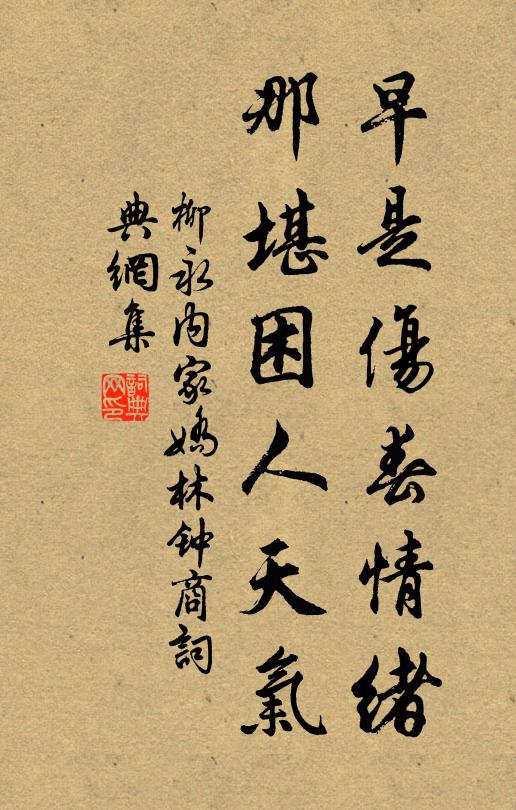 早是傷春情緒
那堪困人天氣
柳永內家嬌林钟商詞
典網集
詞典
网印